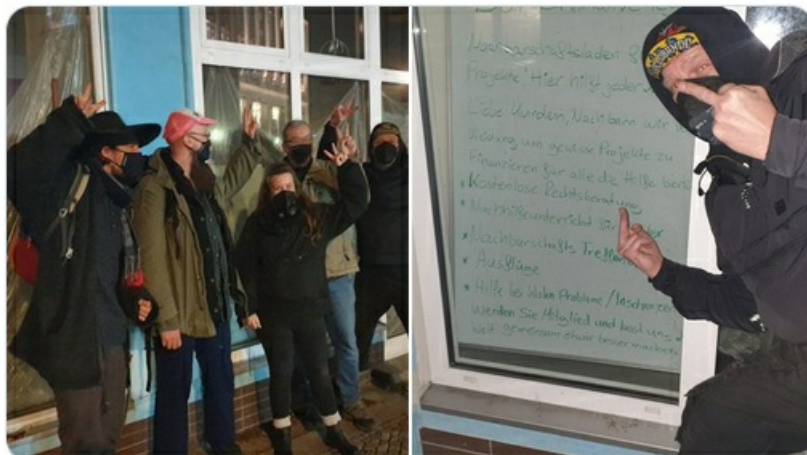 Nachbarschaftsladen
Projekte! Hier hilft jeder
Liebe Kunden, Nachbarn wir
Kleidung um gewisse Projekte zu
Finanzieren für alle die Hilfe
* Kostenlose Rechtsberatung
* Nachhilfeunterricht für
* Nachbarschafts Treffen
* Ausflüge
* Hilfe bei Wohn Probleme /
Werden Sie Mitglied und lasst uns
Welt gemeinsam etwas besser machen.